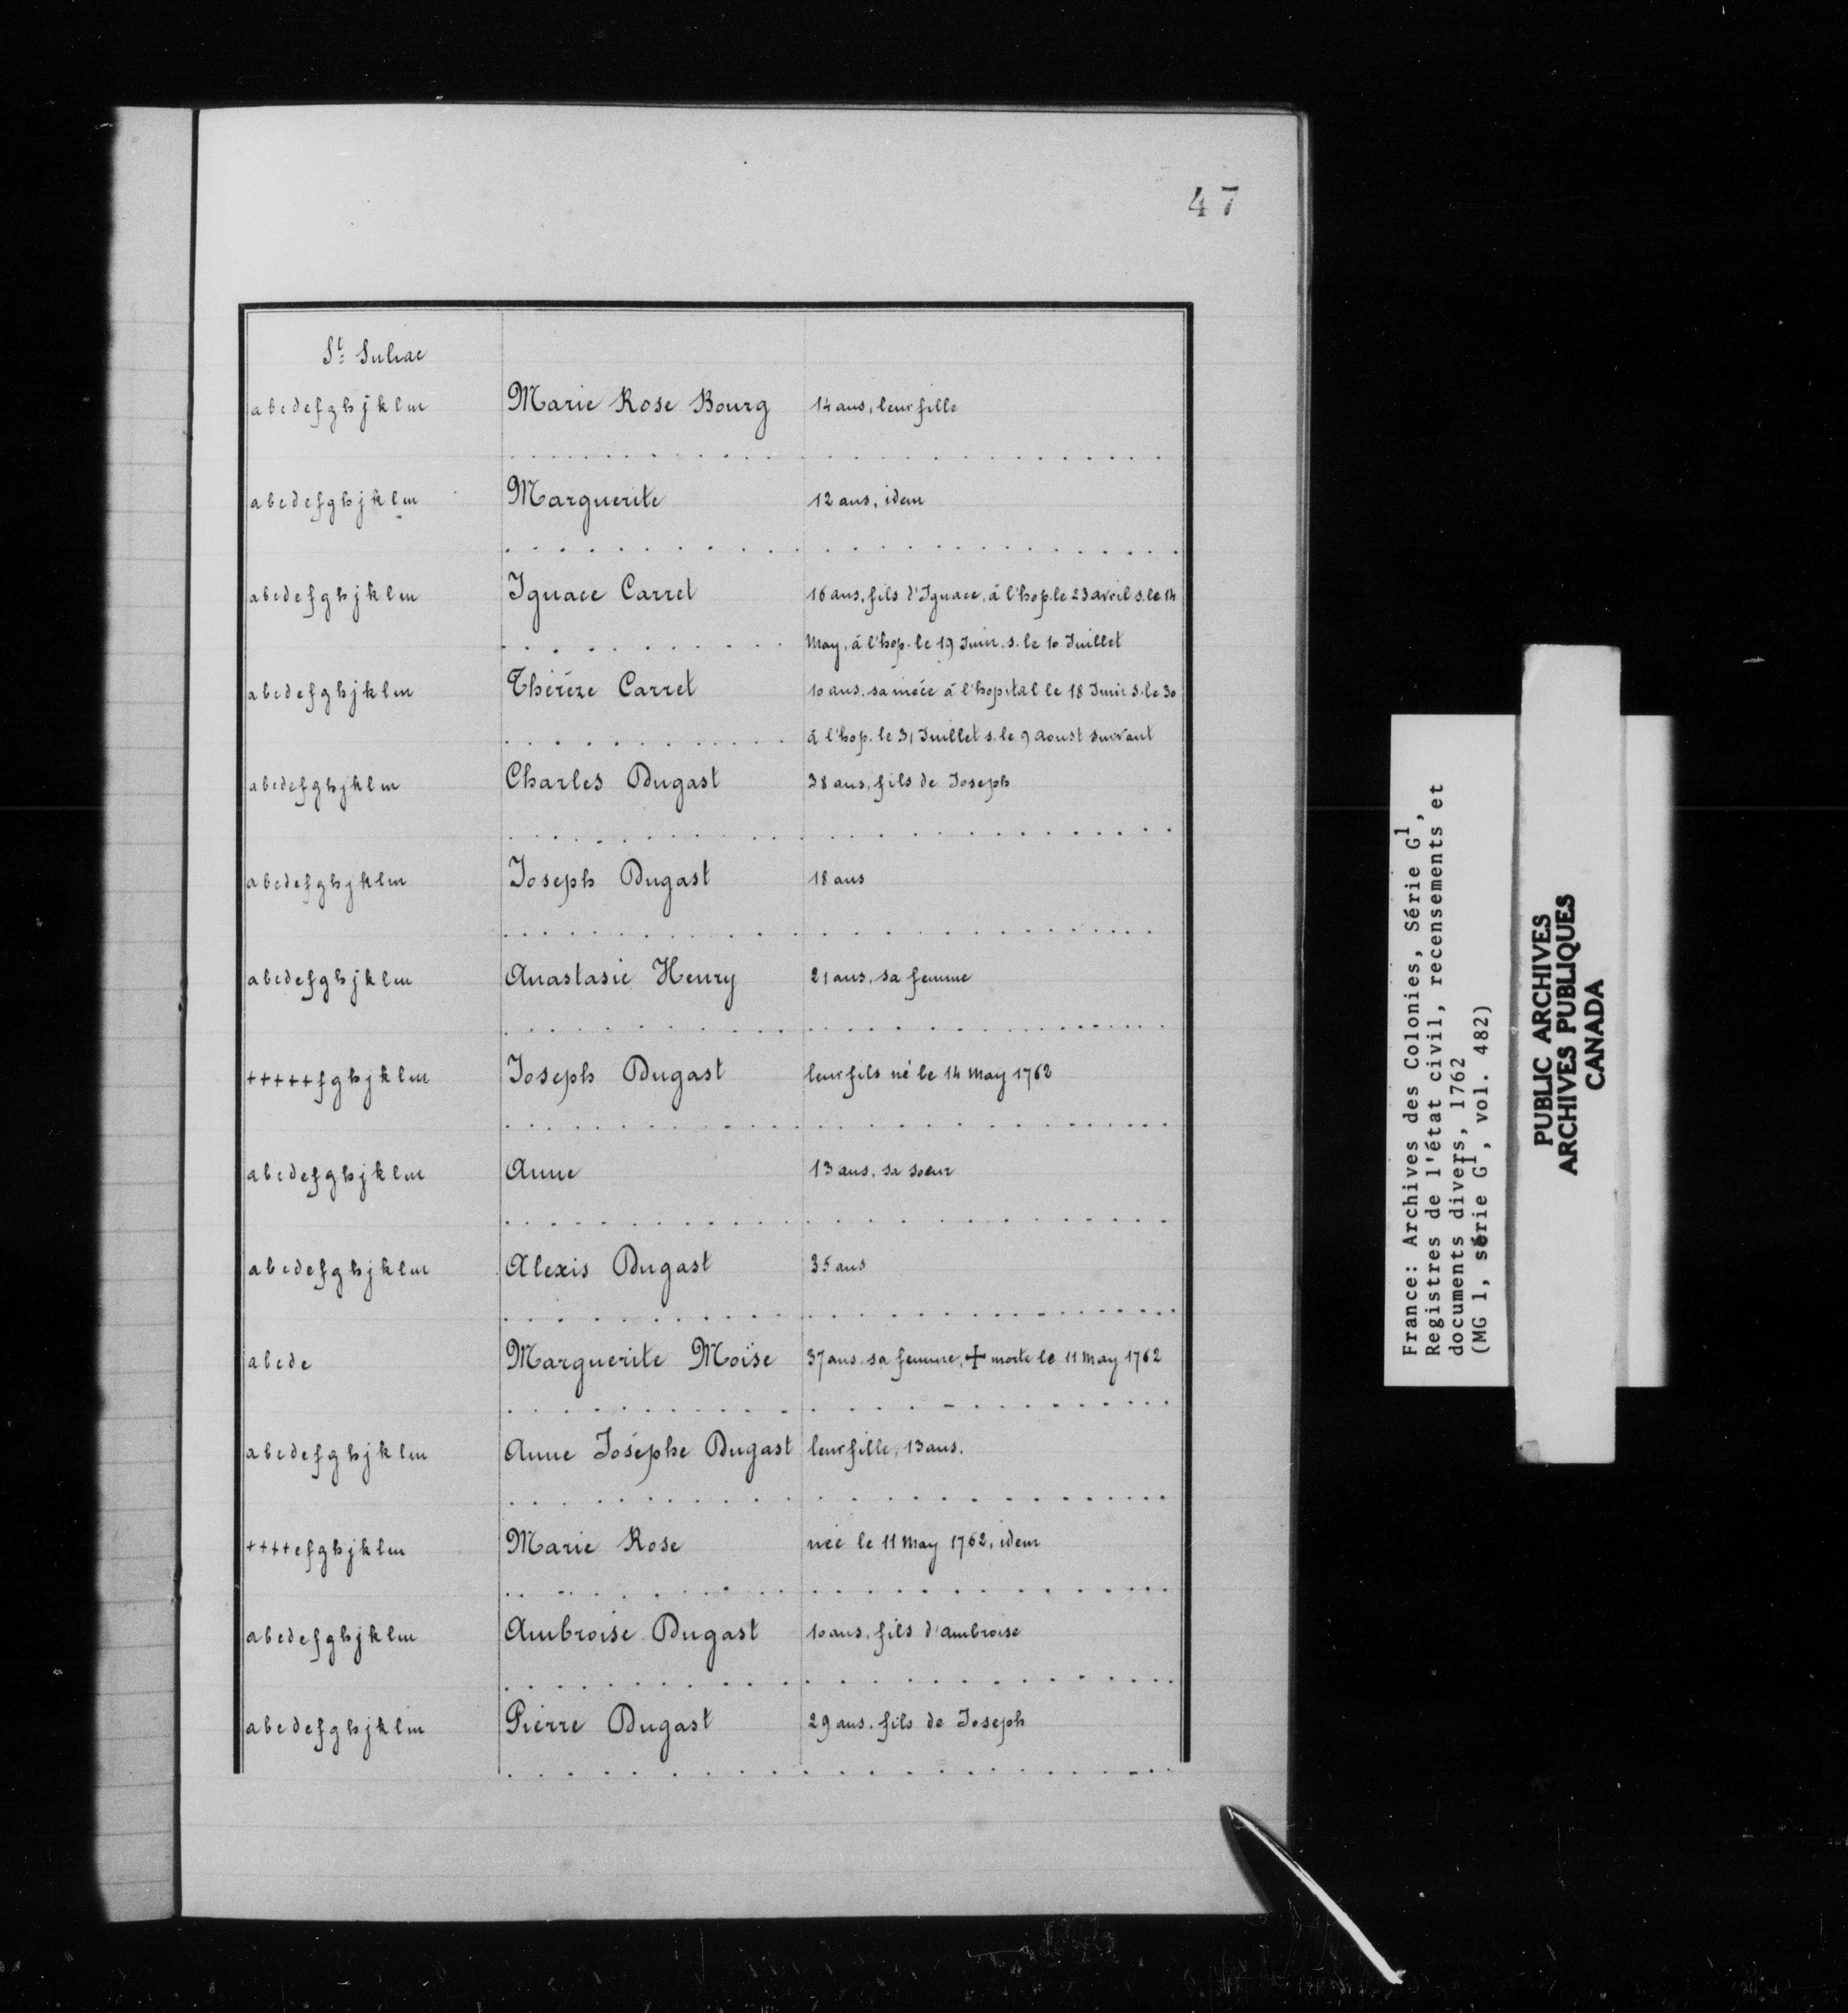 47
St Suliac
abcdefghjklm Marie Rose Bourg 14 ans, leur fille
abcdefghjklm Marguerite 12 ans, idem
abcdefghjklm Ignace Carret 16 ans, fils d'Ignace, à l'hop. le 23 avril s. le 14
May, à l'hop. le 19 Juin. s. le 10 Juillet
abcdefghjklm Thérèze Carret 10 ans. sa nièce à l'hopital le 18 Juin s. le 30
à l'hop. le 31 Juillet s. le 9 aoust suivant
abcdefghjklm Charles Dugast 38 ans, fils de Joseph
abcdefghjklm Joseph Dugast 18 ans
abcdefghjklm Anastasie Henry 21 ans, sa femme
+++++fghjklm Joseph Dugast leur fils né le 14 May 1762
abcdefghjklm Anne 13 ans, sa soeur
abcdefghjklm Alexis Dugast 35 ans
abcde Marguerite Moïse 37 ans. sa femme, + morte le 11 May 1762
abcdefghjklm Anne Josèphe Dugast leur fille, 13 ans.
++++efghjklm Marie Rose née le 11 May 1762, idem
abcdefghjklm Ambroise Dugast 10 ans, fils d'ambroise
abcdefghjklm Pierre Dugast 29 ans. fils de Joseph
France: Archives des Colonies, Série G1,
Registres de l'état civil, recensements et
documents divers, 1762
(MG 1, série G1, vol. 482)
PUBLIC ARCHIVES
ARCHIVES PUBLIQUES
CANADA